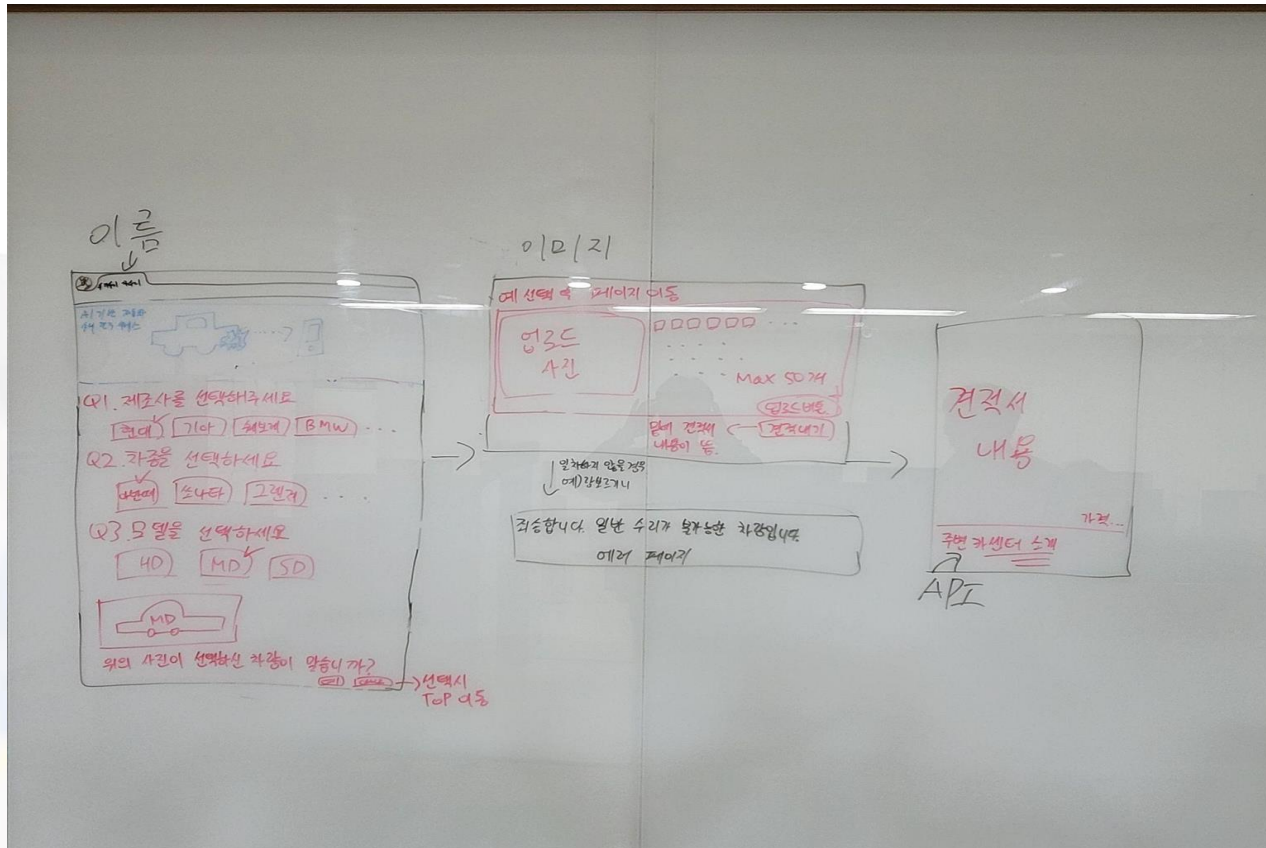 이름
AI 기반 자동차
수리 견적 서비스
Q1. 제조사를 선택해주세요
현대 기아 쉐보레 BMW ...
Q2. 차종을 선택하세요
아반떼 쏘나타 그랜져 ....
Q3. 모델을 선택하세요
HD MD SD
MD
위의 사진이 선택하신 차량이 맞습니까?
예 아니오
선택시
TOP 이동
이미지
예 선택 후 페이지 이동
업로드
사진
Max 50개
업로드버튼
견적내기
밑에 견적서
내용이 뜸.
일치하지 않을 경우
예) 람보르기니
죄송합니다. 일단 수리가 불가능한 차량입니다.
에러 페이지
견적서
내용
가격...
주변 카센터 소개
API